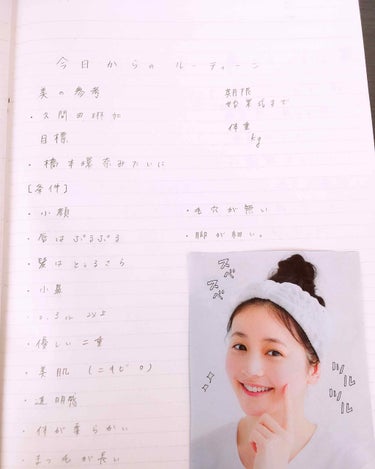 今日からのルーティーン
美の参考
期限
・久間田琳加
体重
目標
kg
・橋本環奈みたいに
[条件]
・小顔
・毛穴が無い
・唇はぷるぷる
・脚が細い。
・髪はとぅるさら
・小鼻
・優しい二重
・美肌 (ニキビ0)
・透明感
・体が柔らかい
・まつ毛が長い
スベ
スベ
ツル
ツル